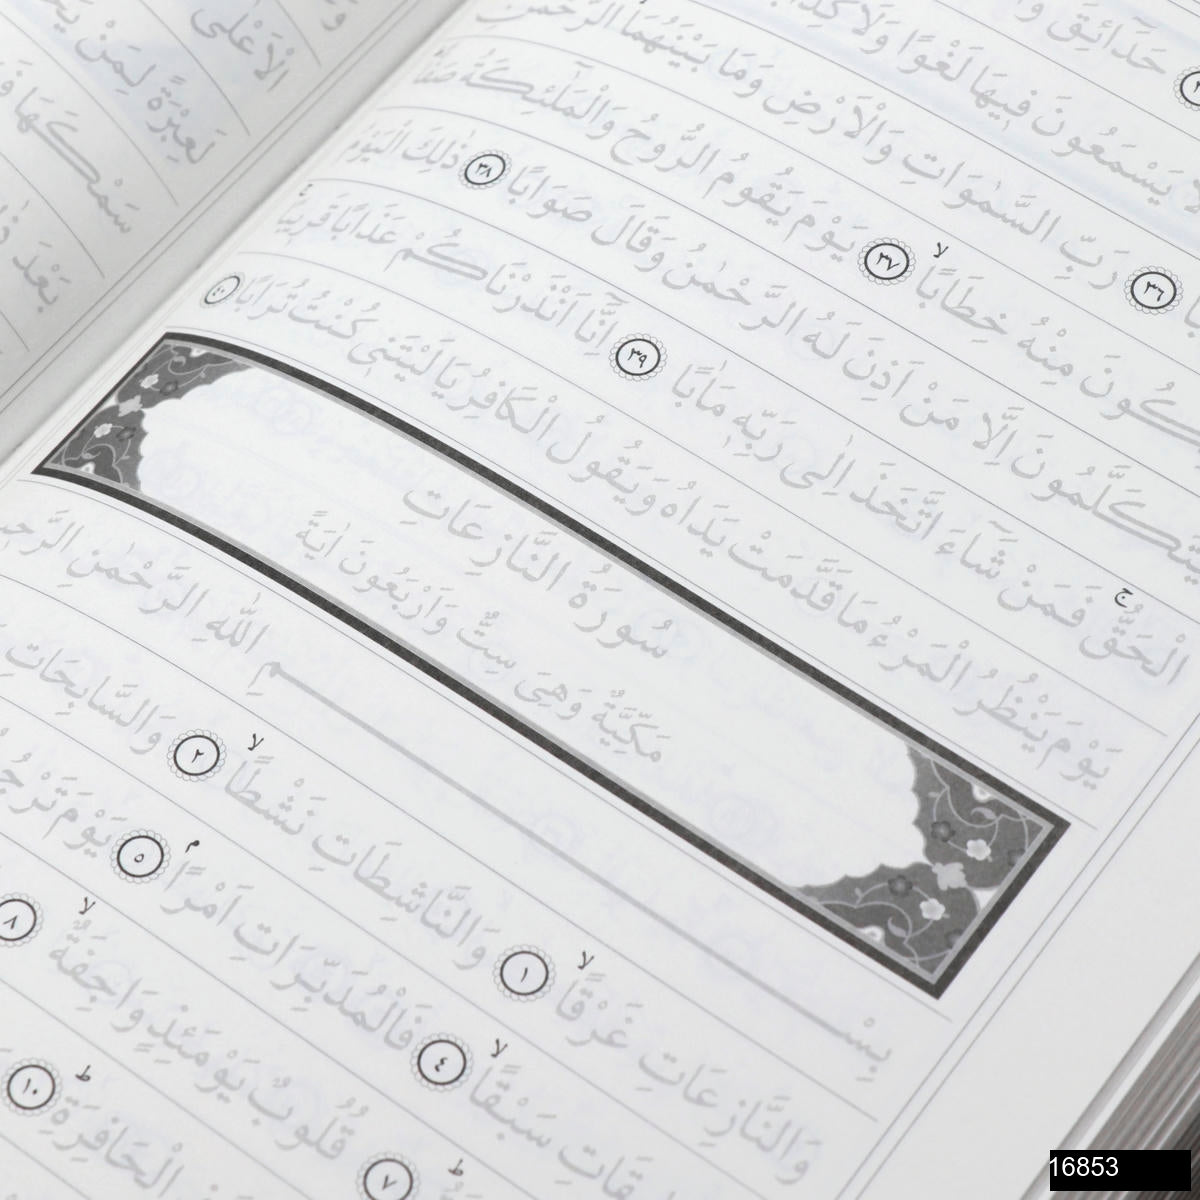 حَدَٓائِقَ
يَسْمَعُونَ فٖيهَا لَغْوًا وَلَا كِذَّابًا
٣٦ رَبِّ السَّمٰوَاتِ وَالْاَرْضِ وَمَا بَيْنَهُمَا الرَّحْمٰنِ
خِطَابًاۙ ٣٧ يَوْمَ يَقُومُ الرُّوحُ وَالْمَلٰٓئِكَةُ صَفًّا
يَتَكَلَّمُونَ اِلَّا مَنْ اَذِنَ لَهُ الرَّحْمٰنُ وَقَالَ صَوَابًا ٣٨ ذٰلِكَ الْيَوْمُ
الْحَقُّۚ فَمَنْ شَٓاءَ اتَّخَذَ اِلٰى رَبِّهٖ مَاٰبًا ٣٩ اِنَّٓا اَنْذَرْنَاكُمْ عَذَابًا قَرٖيبًاۚ
يَوْمَ يَنْظُرُ الْمَرْءُ مَا قَدَّمَتْ يَدَاهُ وَيَقُولُ الْكَافِرُ يَا لَيْتَنٖى كُنْتُ تُرَابًا ٤٠
سُورَةُ النَّازِعَاتِ
مَكِّيَّةٌ وَهِىَ سِتٌّ وَاَرْبَعُونَ اٰيَةً
بِسْمِ اللّٰهِ الرَّحْمٰنِ
وَالنَّازِعَاتِ غَرْقًاۙ ١ وَالنَّاشِطَاتِ نَشْطًاۙ ٢ وَالسَّابِحَاتِ
سَبْقًاۙ ٤ فَالْمُدَبِّرَاتِ اَمْرًاۘ ٥ يَوْمَ تَرْجُفُ
٧ قُلُوبٌ يَوْمَئِذٍ وَاجِفَةٌۙ ٨
الْحَافِرَةِۜ ١٠
الْاَعْلٰى
لَعِبْرَةً لِمَنْ
سَمْكَهَا
بَعْدَ
16853